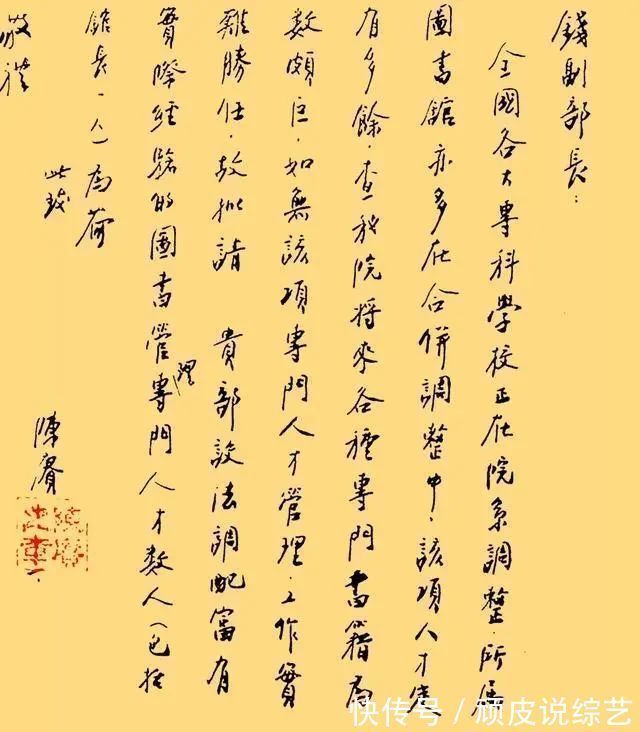 錢副部長：
全國各大專科學校正在院系調整，所屬
圖書館亦多在合併調整中，該項人才定
有多餘，查我院將來各種專門書籍為
數頗巨，如無該項專門人才管理，工作實
難勝任，故擬請 貴部設法調配富有
實際經驗的圖書管理專門人才數人（包括
館長一人）為荷
此致
敬禮
陳賡
快传号／顽皮说综艺